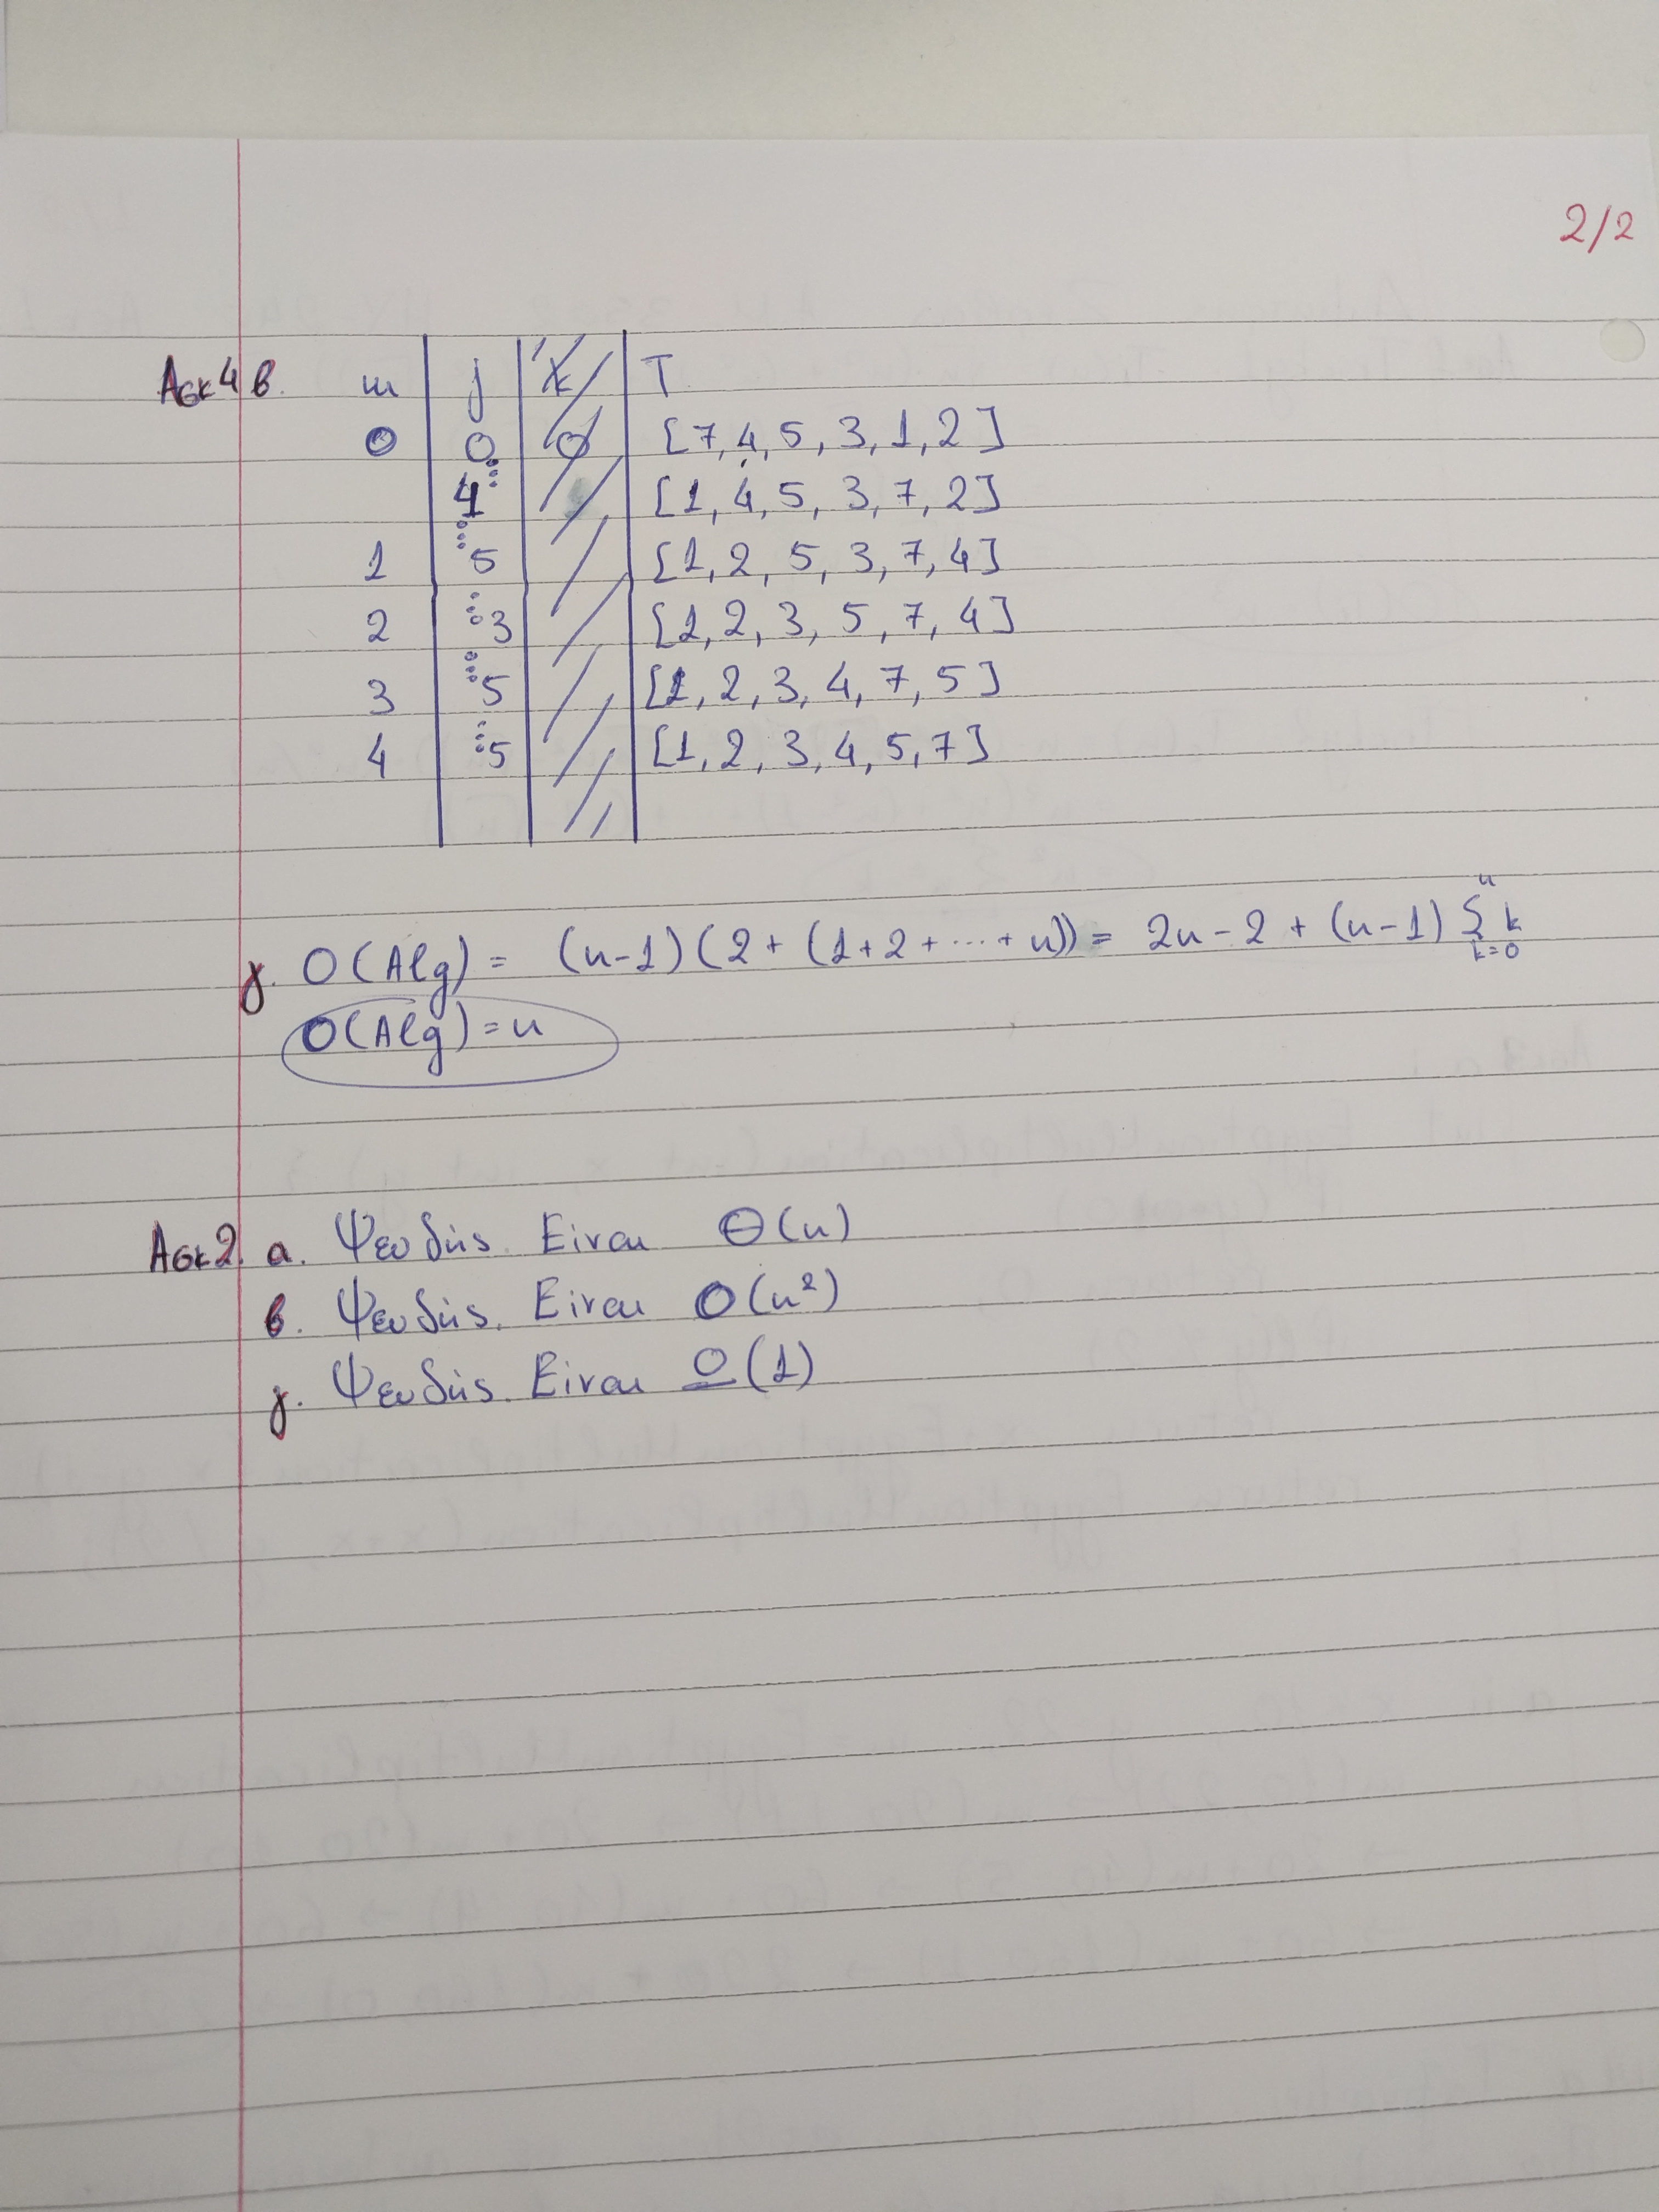 2/2
Ασκ4 β. m j T
0 0 [7, 4, 5, 3, 1, 2]
4 [1, 4, 5, 3, 7, 2]
1 5 [1, 2, 5, 3, 7, 4]
2 3 [1, 2, 3, 5, 7, 4]
3 5 [1, 2, 3, 4, 7, 5]
4 5 [1, 2, 3, 4, 5, 7]
γ. O(Alg) = (n-1)(2+(1+2+...+n)) = 2n-2+(n-1) Σ_{k=0}^{n} k
O(Alg)=n
Ασκ2. α. Ψευδής. Είναι Θ(n)
β. Ψευδής. Είναι O(n²)
γ. Ψευδής. Είναι O(1)